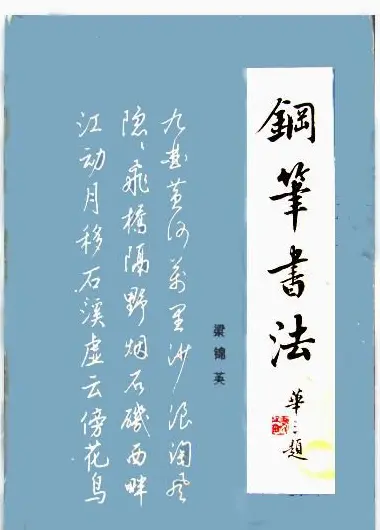 鋼筆书法
華三題
梁锦英
九曲黄河万里沙浪淘风
隐〻飛橋隔野烟石磯西畔
江动月移石溪虚云傍花鸟